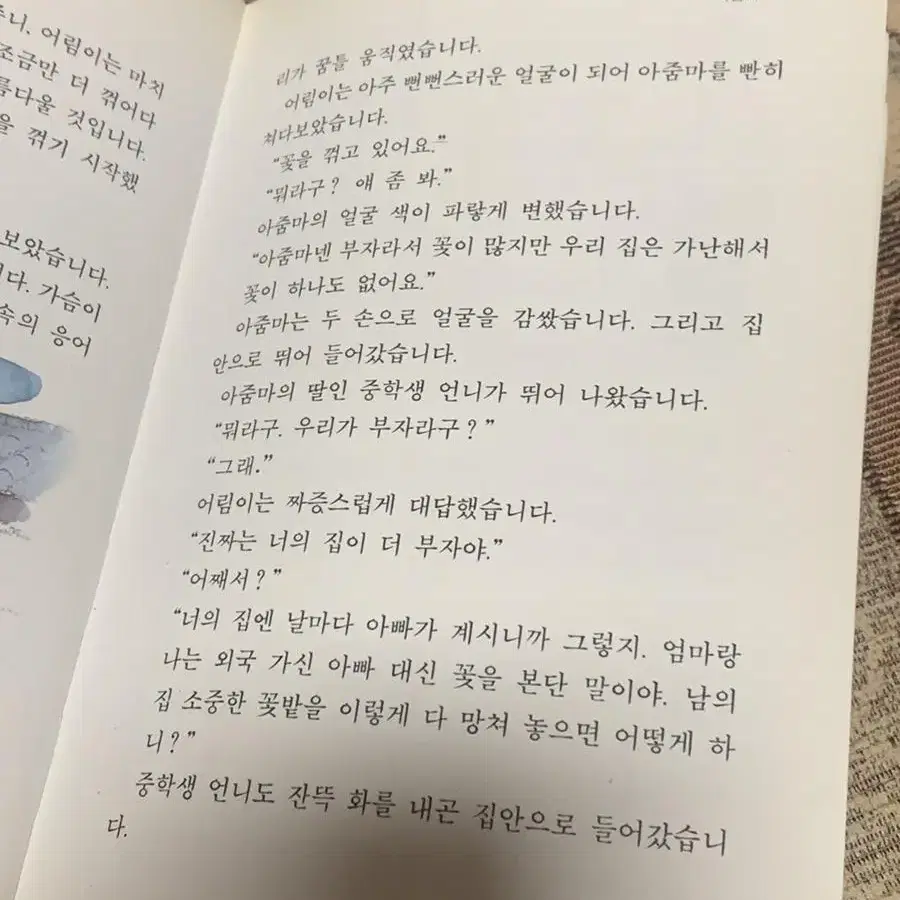 주니. 어림이는 마치
조금만 더 꺾어다
름다울 것입니다.
을 꺾기 시작했
보았습니다.
니다. 가슴이
속의 응어
리가 꿈틀 움직였습니다.
어림이는 아주 뻔뻔스러운 얼굴이 되어 아줌마를 빤히
쳐다보았습니다.
“꽃을 꺾고 있어요.”
“뭐라구? 얘 좀 봐.”
아줌마의 얼굴 색이 파랗게 변했습니다.
“아줌마넨 부자라서 꽃이 많지만 우리 집은 가난해서
꽃이 하나도 없어요.”
아줌마는 두 손으로 얼굴을 감쌌습니다. 그리고 집
안으로 뛰어 들어갔습니다.
아줌마의 딸인 중학생 언니가 뛰어 나왔습니다.
“뭐라구. 우리가 부자라구?”
“그래.”
어림이는 짜증스럽게 대답했습니다.
“진짜는 너의 집이 더 부자야.”
“어째서?”
“너의 집엔 날마다 아빠가 계시니까 그렇지. 엄마랑
나는 외국 가신 아빠 대신 꽃을 본단 말이야. 남의
집 소중한 꽃밭을 이렇게 다 망쳐 놓으면 어떻게 하
니?”
중학생 언니도 잔뜩 화를 내곤 집안으로 들어갔습니
다.